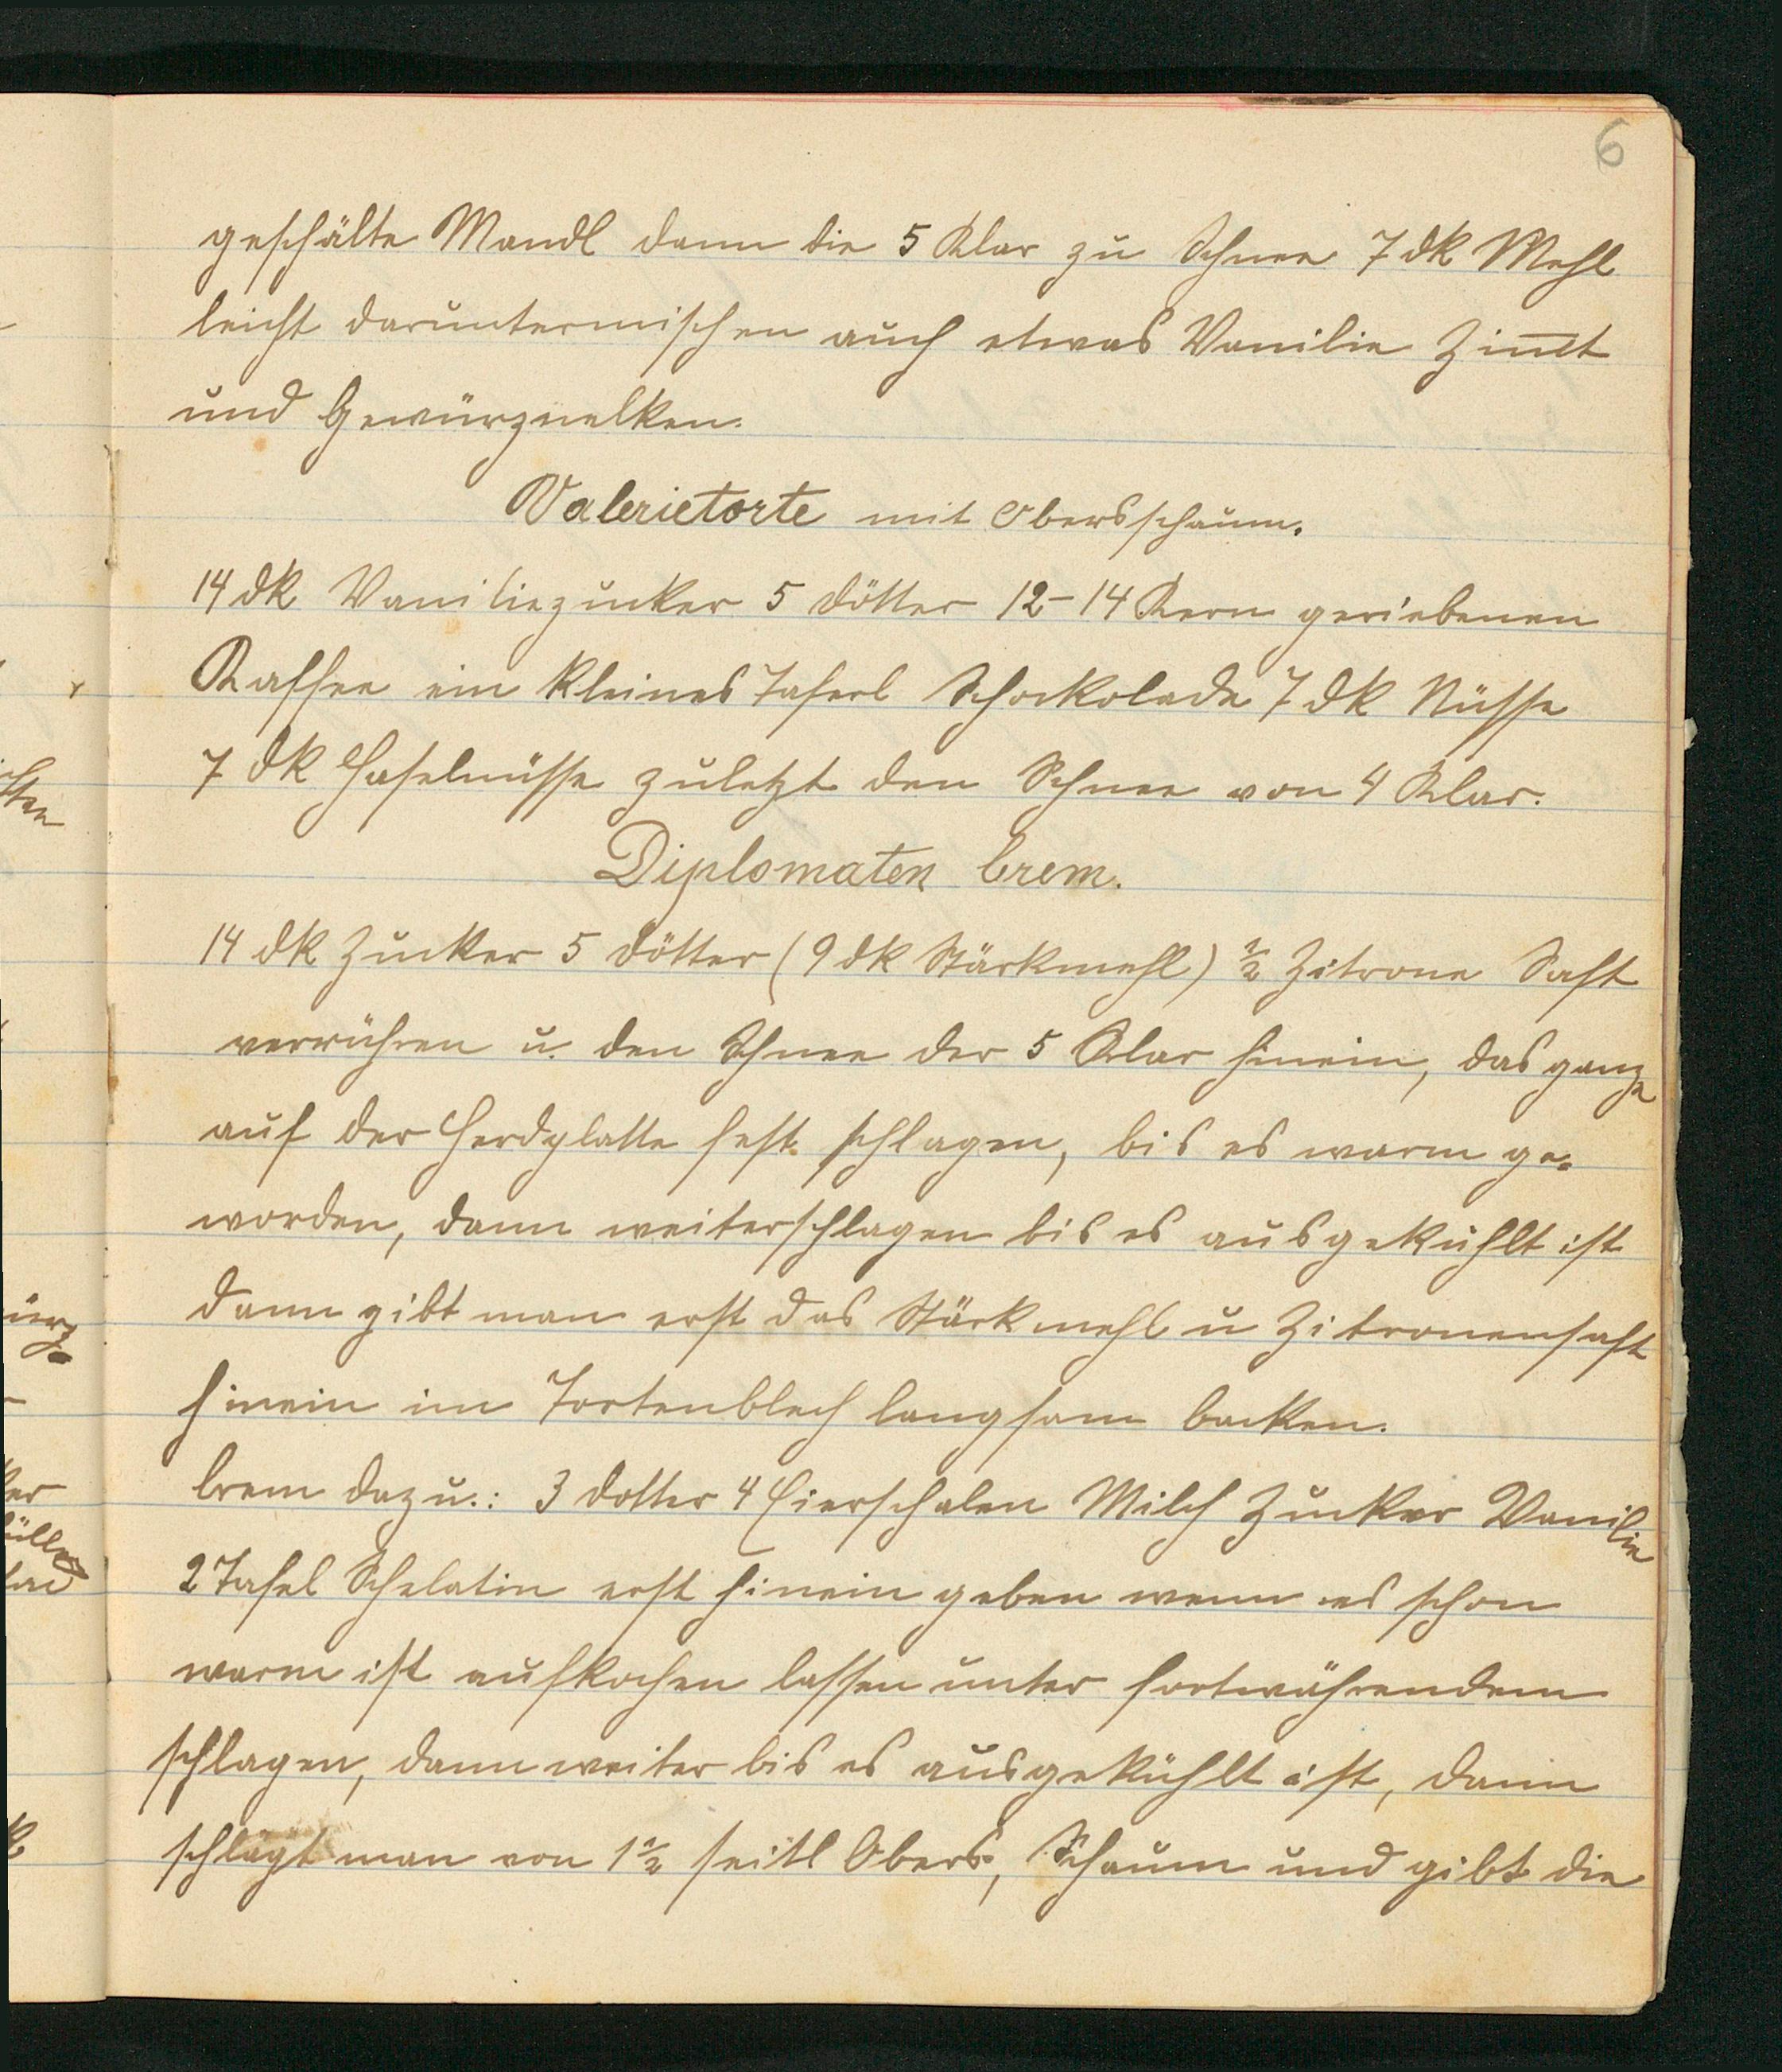 6
geschälte Mandl dann die 5 Klar zu Schnee 7 dk Mehl
leicht daruntermischen auch etwas Vanilie Zim̅t
und Gewürznelken.
Valerietorte mit Obersschaum.
14 dk Vaniliezucker 5 Dötter 12-14 Kern geriebenen
Kaffee ein kleines Taferl Schockolade 7 dk Nüsse
7 dk Haselnüsse zuletzt den Schnee von 4 Klar.
Diplomaten Crem.
14 dk Zucker 5 Dötter (9 dk Stärkmehl) ½ Zitrone Saft
verrühren u. den Schnee der 5 Klar hinein, das ganze
auf der Herdplatte fest schlagen, bis es warm ge=
worden, dann weiterschlagen bis es ausgekühlt ist
dann gibt man erst das Stärkmehl u Zitronensaft
hinein im Tortenblech langsam backen.
Crem dazu.: 3 Dotter 4 Eierschalen Milch Zucker Vanilie
2 Tafel Schelatin erst hinein geben wenn es schon
warm ist aufkochen lassen unter fortwährendem
schlagen, dann weiter bis es ausgekühlt ist, dann
schlägt man von 1½ Seitl Obers, Schaum und gibt die